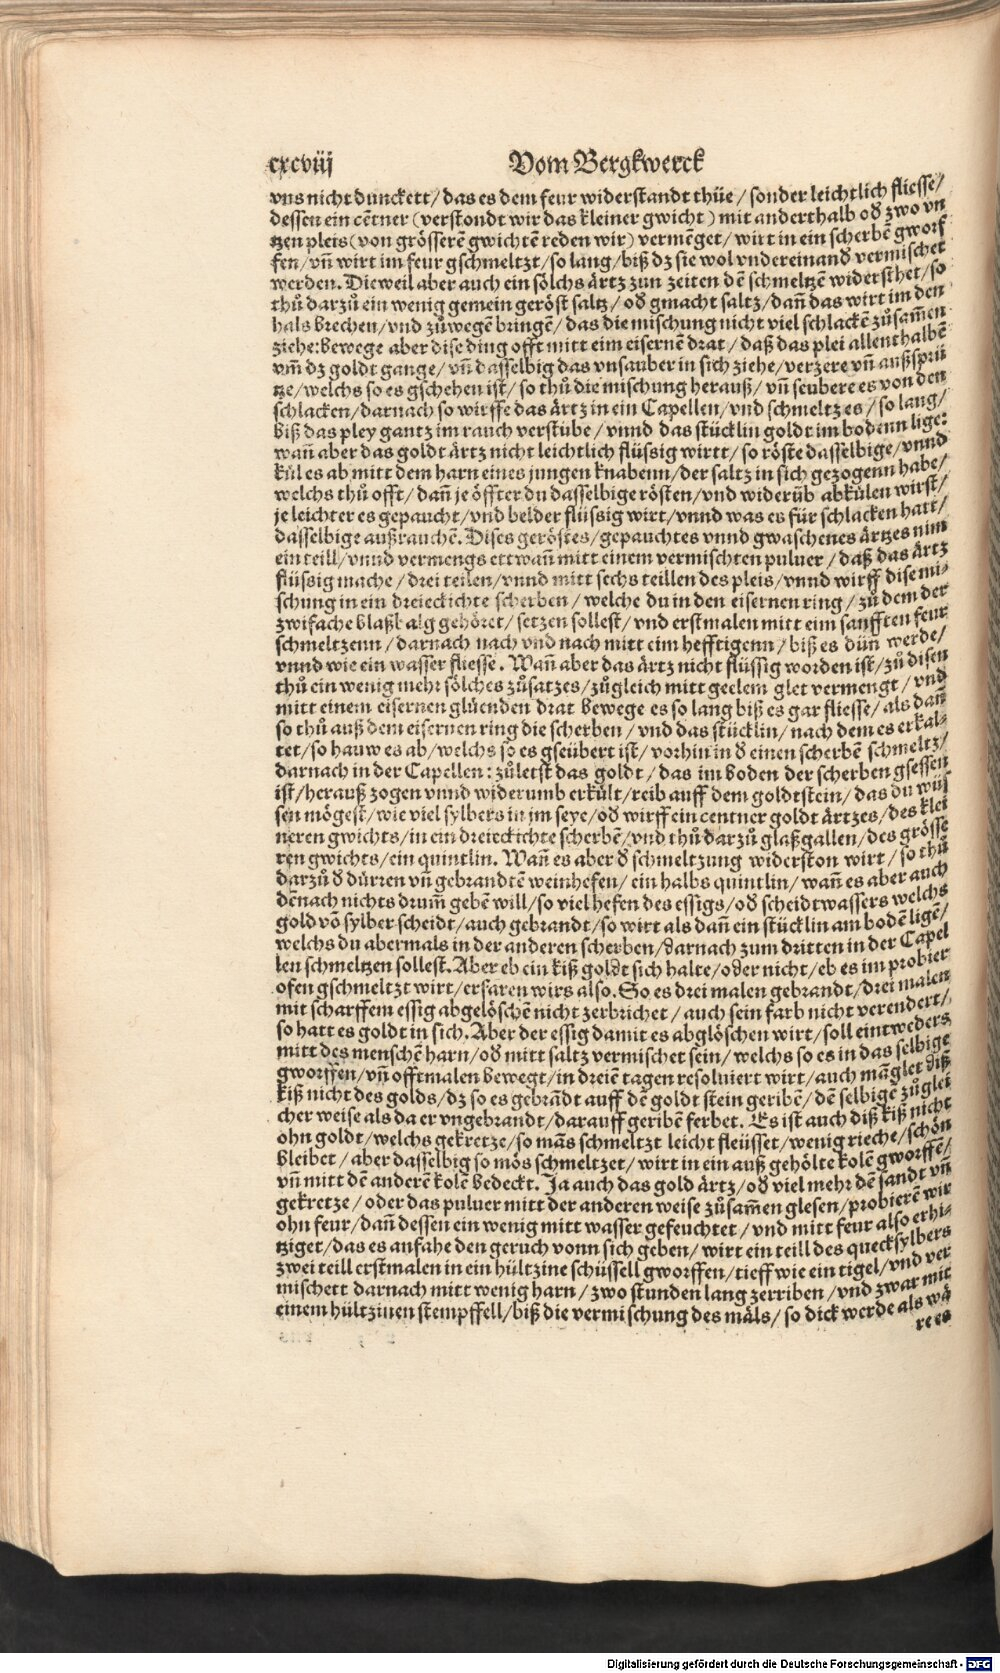 cxcviij Vom Bergkwerck
vns nicht dunckett/ das es dem feur widerstandt thüe/ sonder leichtlich fliesse/
dessen ein cẽtner (verstondt wir das kleiner gwicht) mit anderthalb od zwo vn
tzen pleis (von grösserẽ gwichtẽ reden wir) vermẽget/ wirt in ein scherbẽ gworf
fen/ vñ wirt im feur gschmeltzt/ so lang/ biß dz sie wol vndereinand vermischet
werden. Dieweil aber auch ein sölchs ärtz zun zeiten dẽ schmeltzẽ widersthet/ so
thů darzů ein wenig gemein geröst saltz/ od gmacht saltz/ dañ das wirt im den
hals brechen/ vnd zůwegẽ bringẽ/ das die mischung nicht viel schlackẽ zůsam̃en
ziehe: bewege aber dise ding offt mitt eim eisernẽ drat/ daß das plei allenthalbẽ
vm̃ dz goldt gange/ vñ dasselbig das vnsauber in sich ziehe/ verzere vñ außsprü
tze/ welchs so es gschehen ist/ so thů die mischung herauß/ vñ seubere es von den
schlacken/ darnach so wirffe das ärtz in ein Capellen/ vnd schmeltz es/ so lang/
biß das pley gantz im rauch verstübe/ vnnd das stücklin goldt im bodenn lige:
wañ aber das goldt ärtz nicht leichtlich flüssig wirtt/ so röste dasselbige/ vnnd
kůl es ab mitt dem harn eines jungen knabenn/ der saltz in sich gezogenn habe/
welchs thů offt/ dañ je öffter du dasselbige rösten/ vnd widerüb abkůlen wirst/
je leichter es gepaucht/ vnd belder flüssig wirt/ vnnd was es für schlacken hatt/
dasselbige außrauchẽ. Dises geröstes/ gepauchtes vnnd gwaschenes ärtzes nim
ein teill/ vnnd vermengs ettwañ mitt einem vermischten puluer/ daß das ärtz
flüssig mache/ drei teilen/ vnnd mitt sechs teillen des pleis/ vnnd wirff dise mi⸗
schung in ein dreieckichte scherben/ welche du in den eisernen ring/ zů dem der
zwifache blaßbalg gehöret/ setzen sollest/ vnd erstmalen mitt eim sanfften feur
schmeltzenn/ darnach nach vnd nach mitt eim hefftigenn/ biß es dün werde/
vnnd wie ein wasser fliesse. Wañ aber das ärtz nicht flüssig worden ist/ zů disen
thů ein wenig mehr sölches zůsatzes/ zůgleich mitt geelem glet vermengt/ vnd
mitt einem eisernen glüenden drat bewege es so lang biß es gar fliesse/ als dañ
so thů auß dem eisernen ring die scherben/ vnd das stücklin/ nach dem es erkal⸗
tet/ so hauw es ab/ welchs so es gseübert ist/ vorhin in d einen scherbẽ schmeltz/
darnach in der Capellen: zůletst das goldt/ das im boden der scherben gsessen
ist/ herauß zogen vnnd widerumb erkůlt/ reib auff dem goldtstein/ das du wüs
sen mögest/ wie viel sylbers in jm seye/ od wirff ein centner goldt ärtzes/ des klei
neren gwichts/ in ein dreieckichte scherbẽ/ vnd thů darzů glaßgallen/ des grösse
ren gwichts/ ein quintlin. Wañ es aber d schmeltzung widerston wirt/ so thů
darzů d dürren vñ gebrandtẽ weinhefen/ ein halbs quintlin/ wañ es aber auch
dẽnach nichts drum̃ gebẽ will/ so viel hefen des essigs/ od scheidtwassers welchs
gold võ sylber scheidt/ auch gebrandt/ so wirt als dañ ein stücklin am bodẽ ligẽ/
welchs du abermals in der anderen scherben/ darnach zum dritten in der Capel
len schmeltzen sollest. Aber eb ein kiß goldt sich halte/ oder nicht/ eb es im probier
ofen gschmeltzt wirt/ erfaren wirs also. So es drei malen gebrandt/ drei malen
mit scharffem essig abgelöschẽ nicht zerbrichet/ auch sein farb nicht verendert/
so hatt es goldt in sich. Aber der essig damit es abglöschen wirt/ soll eintweders
mitt des menschẽ harn/ od mitt saltz vermischet sein/ welchs so es in das selbige
gworffen/ vñ offtmalen bewegt/ in dreiẽ tagen resoluiert wirt/ auch mãglet diß
kiß nicht des golds/ dz so es gebrãdt auff dẽ goldt stein geribẽ/ dẽ selbigẽ zůglei
cher weise als da er vngebrandt/ darauff geribẽ ferbet. Es ist auch diß kiß nicht
ohn goldt/ welchs gekretze/ so mãs schmeltzt leicht fleüsset/ wenig rieche/ schön
bleibet/ aber dasselbig so mös schmeltzet/ wirt in ein auß gehölte kolẽ gworffẽ/
vñ mitt dẽ anderẽ kolẽ bedeckt. Ja auch das gold ärtz/ od viel mehr dẽ sandt vñ
gekretze/ oder das puluer mitt der anderen weise zůsam̃en glesen/ probierẽ wir
ohn feur/ dañ dessen ein wenig mitt wasser gefeuchtet/ vnd mitt feur also erhi⸗
tziget/ das es anfahe den geruch vonn sich geben/ wirt ein teill des quecksylbers
zwei teill erstmalen in ein hültzine schüssell gworffen/ tieff wie ein tigel/ vnd ver
mischett darnach mitt wenig harn/ zwo stunden lang zerriben/ vnd zwar mit
einem hültzinen stempffell/ biß die vermischung des mäls/ so dick werde als wä
re es